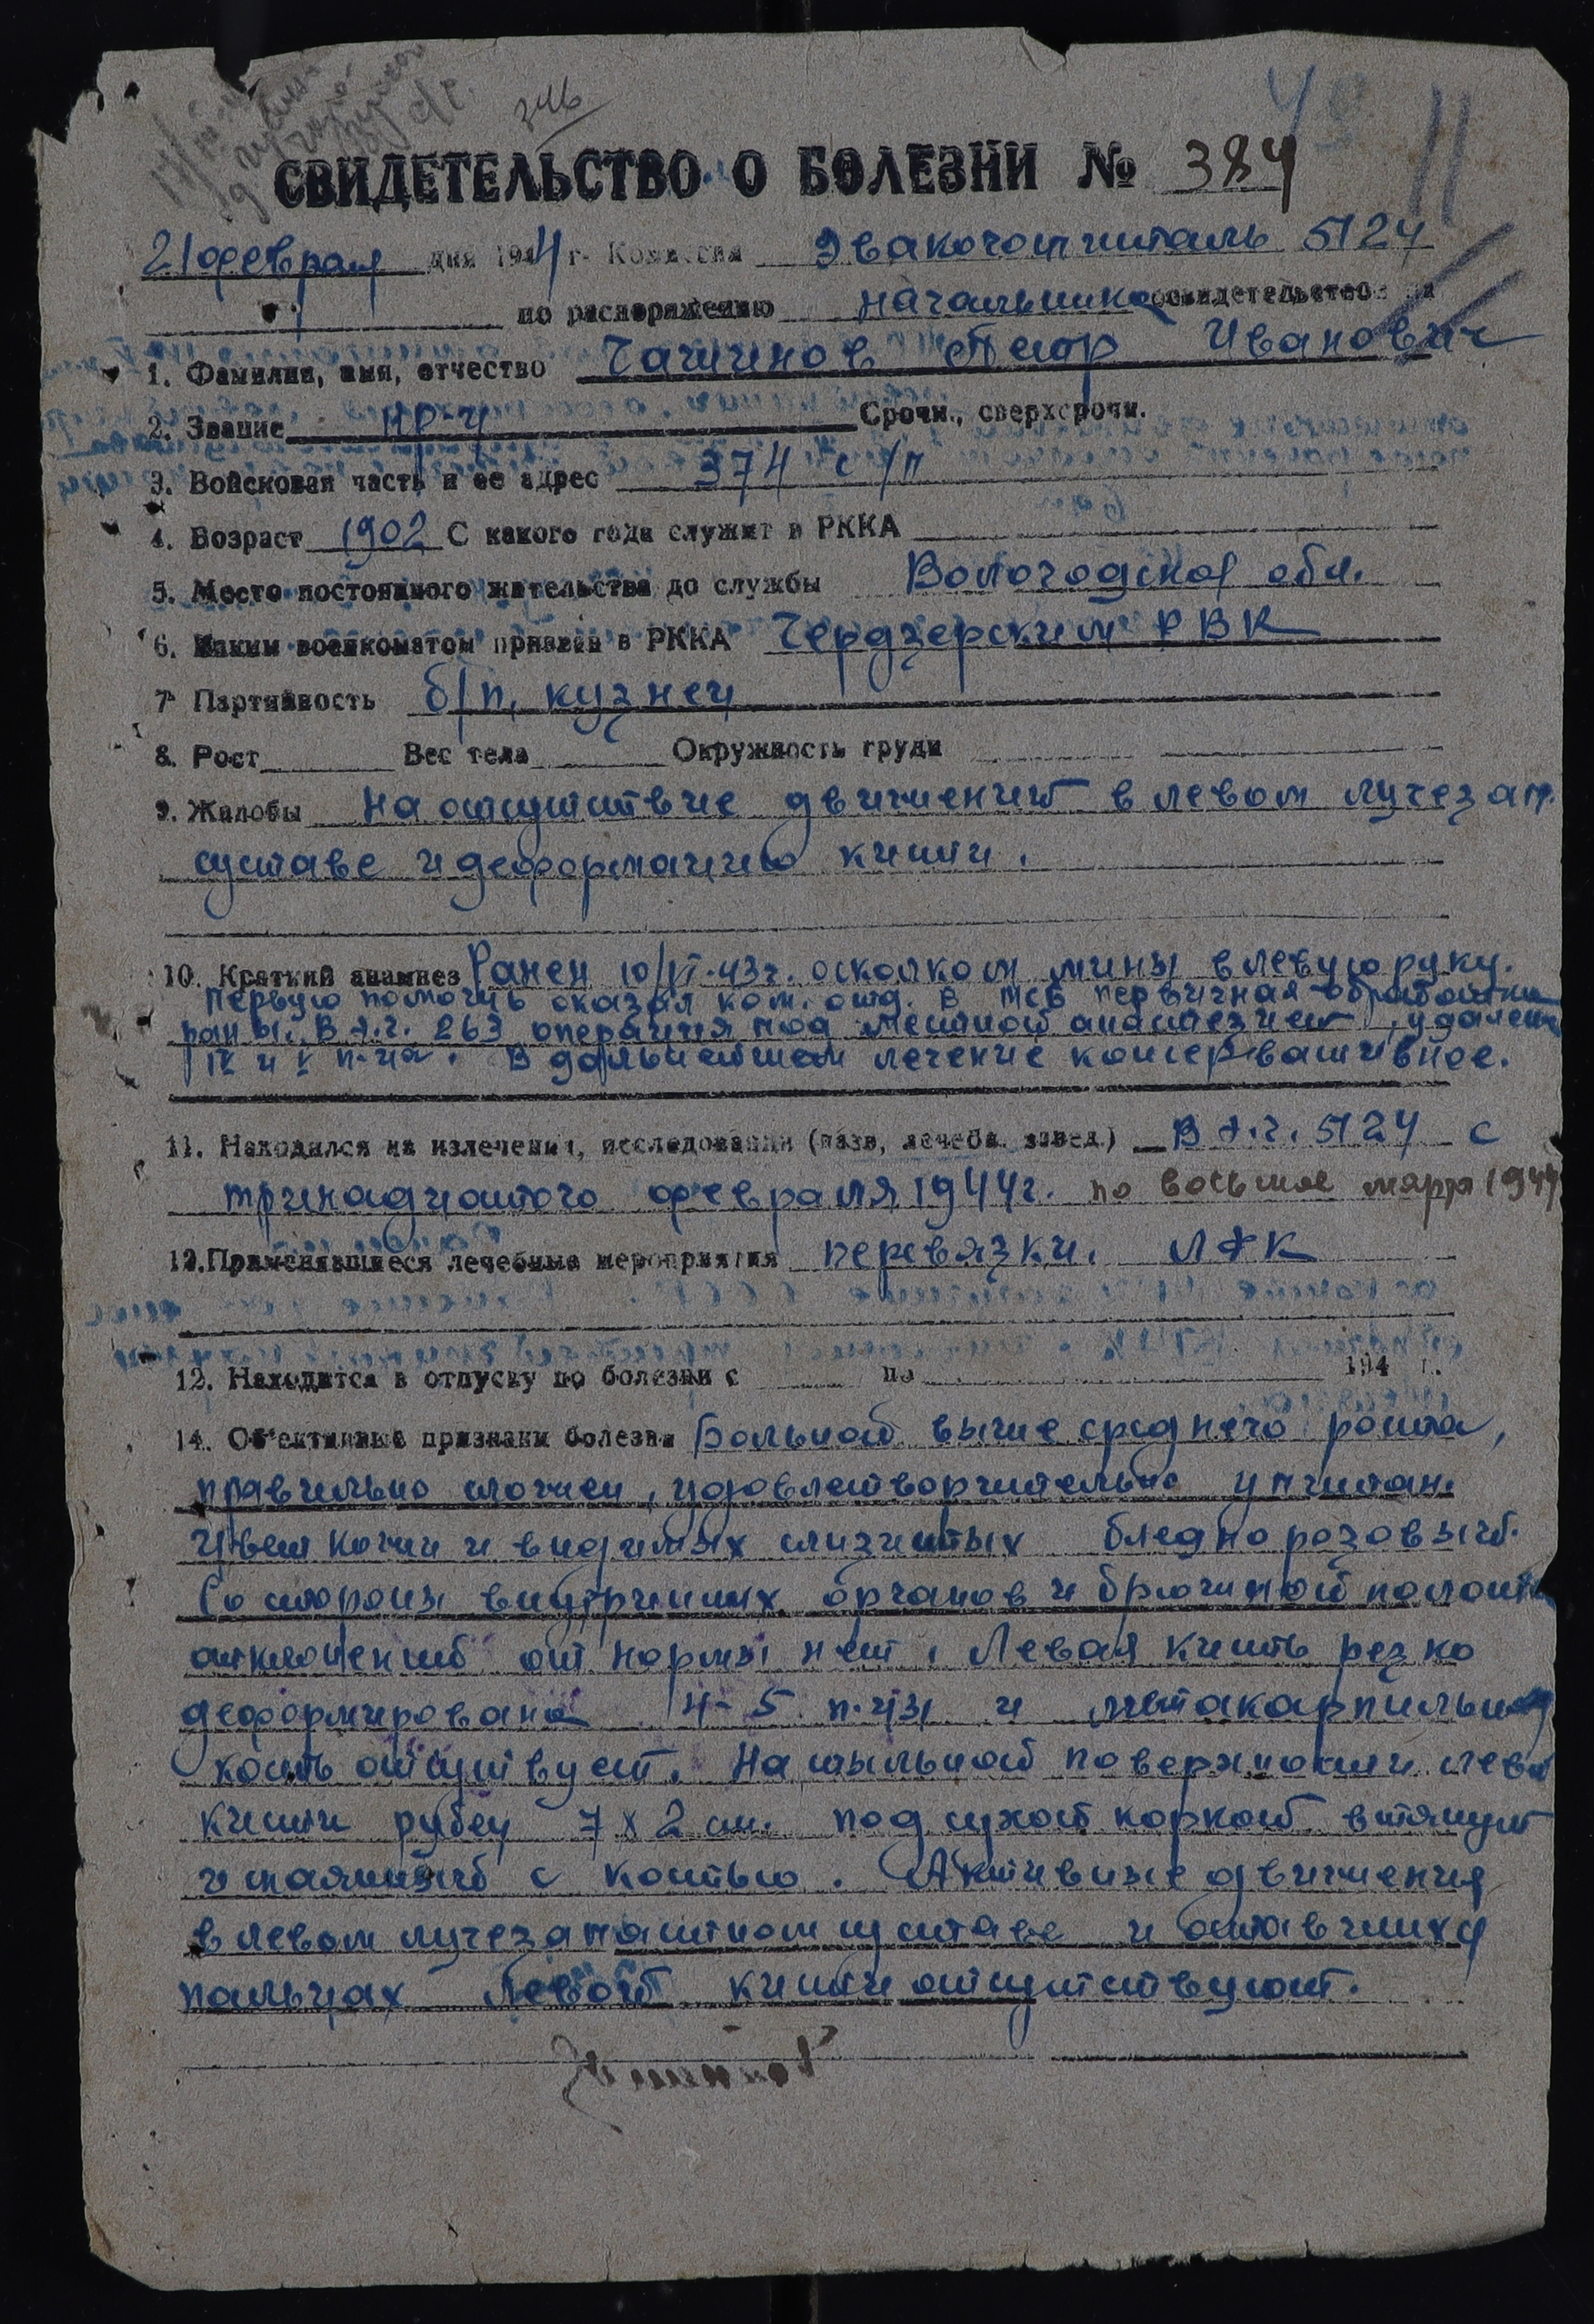 346
СВИДЕТЕЛЬСТВО О БОЛЕЗНИ № 384
21 февраля дня 1944 г. Комиссия Эвакогоспиталь 5124
по распоряжению начальника освидетельствов
1. Фамилия, имя, отчество Чашинов Петр Иванович
2. Звание кр-ц Срочн., сверхсрочн.
3. Войсковая часть и ее адрес 374 с/п
4. Возраст 1902 С какого года служит в РККА
5. Место постоянного жительства до службы Вологодская обл.
6. Каким военкоматом призван в РККА Чердзерским РВК
7. Партийность б/п, кузнец
8. Рост Вес тела Окружность груди
9. Жалобы На отсутствие движений в левом лучезап.
суставе и деформацию кисти.
10. Краткий анамнез Ранен 10/VI-43г. осколком мины в левую руку.
Первую помощь оказал ком. отд. В МСБ первичная обработка
раны. В э.г. 263 операция под местной анастезией, удалены
IV и V п-ца. В дальнейшем лечение консервативное.
11. Находился на излечении, исследовании (назв, лечебн. завед.) В э.г. 5124 с
тринадцатого февраля 1944г. по восьмое марта 1944
13. Применявшиеся лечебные мероприятия перевязки. ЛФК
12. Находится в отпуску по болезни с по 194 г.
14. Объективные признаки болезни Больной выше среднего роста,
правильно сложен, удовлетворительно упитан.
Цвет кожи и видимых слизистых бледно розовый.
Со стороны внутренних органов и брюшной полости
отклонений от нормы нет. Левая кисть резко
деформирована 4-5 п-цы и метакарпильная
кость отсутвует. На тыльной поверхности левой
кисти рубец 7х2 см. под сухой коркой втянут
и спаянный с костью. Активные движения
в левом лучезапястном суставе и оставшихся
пальцах левой кисти отсутствуют.